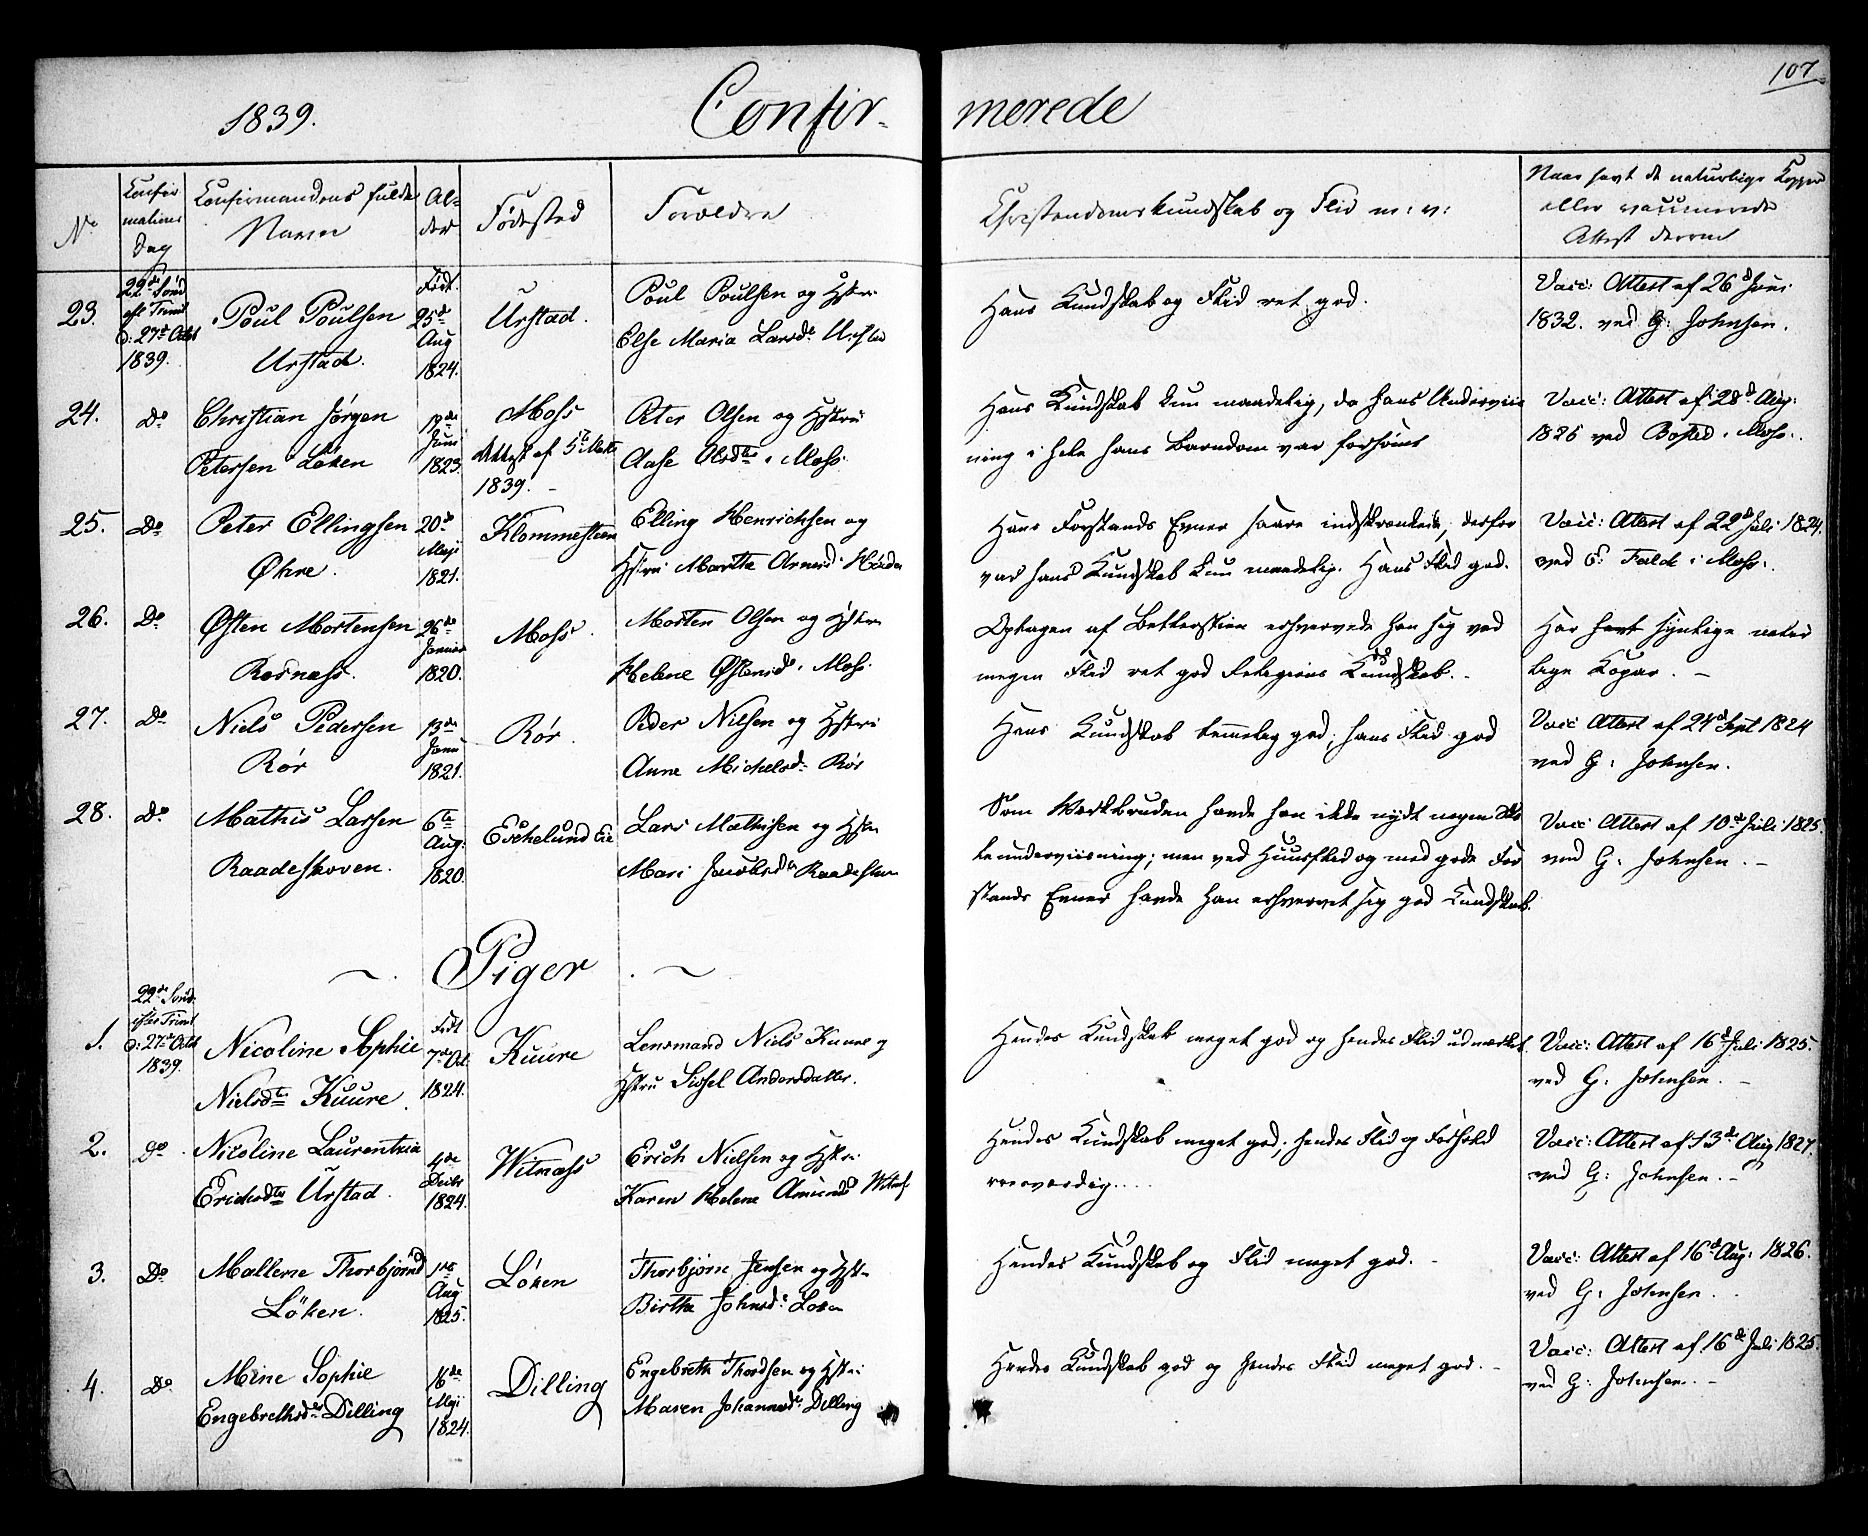 107
1839. Confir- merede
No
Confir
mations
Dag
Confirmandens fulde
Navn
Al-
der
Fødested
Forældre
Christendomskundskab og Flid m: v:
Naar havt de naturlige Kopper
eller vaccinerede
Attest derom
23.
22de Sønd
eft Trinit
d: 27de Octbr
1839.
Poul Poulsen
Urstad.
Født.
25de
Aug
1824.
Urstad.
Poul Poulsen og Hstru
Else Maria Larsd: Urstad
Hans Kundskab og Flid ret god.
Vacc: Attest af 26d Juni
1832. ved G: Johnsen.
24.
Do
Christian Jørgen
Petersen Løken
Juni
1823.
Moss
Attest af 5te
1839.
Peter Olsen og Hstru
Aase Olsdtr i Moss.
Hans Kundskab kun maadelig, da hans Underviis
ning i hele hans Barndom var forsømt
Vacc: Attest af 28d Aug:
1826 ved i Moss.
25.
Do
Peter Ellingsen
Økne.
20de
Maji
1821.
Klommesteen
Elling Henrichsen og
Hstru Marthe
Hans Forstands Evner saare indskrænkede, derfor
var hans Kundskab kun maadelig. Hans Flid god.
Vacc: Attest af 22d Juli 1824.
ved E: Falck i Moss.
26.
Do
Østen Mortensen
Rosnæss.
26de
Januar
1820.
Moss.
Morten Olsen og Hstru
Helene Østensd: i Moss.
Optagen af Betlerstien erhvervede han sig ved
megen Flid ret god Religions Kundskab.
Har havt synlige natur
lige Kopper.
27.
Do
Niels Pedersen
Rør
13de
1821.
Rør.
Peder Nilsen og Hstru
Anne Michelsd: Rør
Hans Kundskab temmelig god, hans Flid god
Vacc Attest af 24d Sept 1824
ved G: Johnsen.
28.
Do
Mathis Larsen
Raadeskoven.
6te
Aug:
1820.
Eschelund Eie
Lars Mathisen og Hstru
Mari Jacobsdr Raadeskov
Som Værkbruden havde han ikke nydt nogen Sko
leunderviisning; men ved Huusflid og med gode For
stands Evner havde han erhvervet sig god Kundskab.
Vacc Attest af 10de Juli 1825.
ved G: Johnsen.
Piger
1.
22de Sønd.
efter Trinit
d: 27de Octbr
1839.
Nicoline Sophie
Nielsdtr Kuure.
Født
7de Oct.
1824.
Kuure
Lensmand Niels Kuure og
Hstru Sissel Andersdatter.
Hendes Kundskab meget god og hendes Flid udmærket.
Vacc: Attest af 16d Juli 1825.
ved G: Johnsen.
2.
Do
Nicoline Laurentzia
Erichsdtr Urstad.
4de
Decbr
1824.
Witnæss
Erich Nielsen og Hstru
Karen Helene Amundsd
Hendes Kundskab meget god; hendes Flid og Forhold
roesværdig....
Vacc: Attest af 13de Aug 1827.
ved G: Johnsen.
3.
Do
Mallene Thorbjørnsd
Løken.
1ste
Aug
1825.
Løken
Thorbjørn Jensen og Hstru
Birthe Johnsd: Løken
Hendes Kundskab og Flid meget god.
Vacc: Attest af 16d Aug: 1826.
ved G: Johnsen.
4.
Do
Mine Sophie
Engebrethsdr Dilling
16de
Maji
1824.
Dilling
Engebreth Thordsen og Hstru
Maren Johannesd: Dilling
Hendes Kundskab god og hendes Flid meget god.
Vacc: Attest af 16de Juli 1825.
ved G: Johnsen.